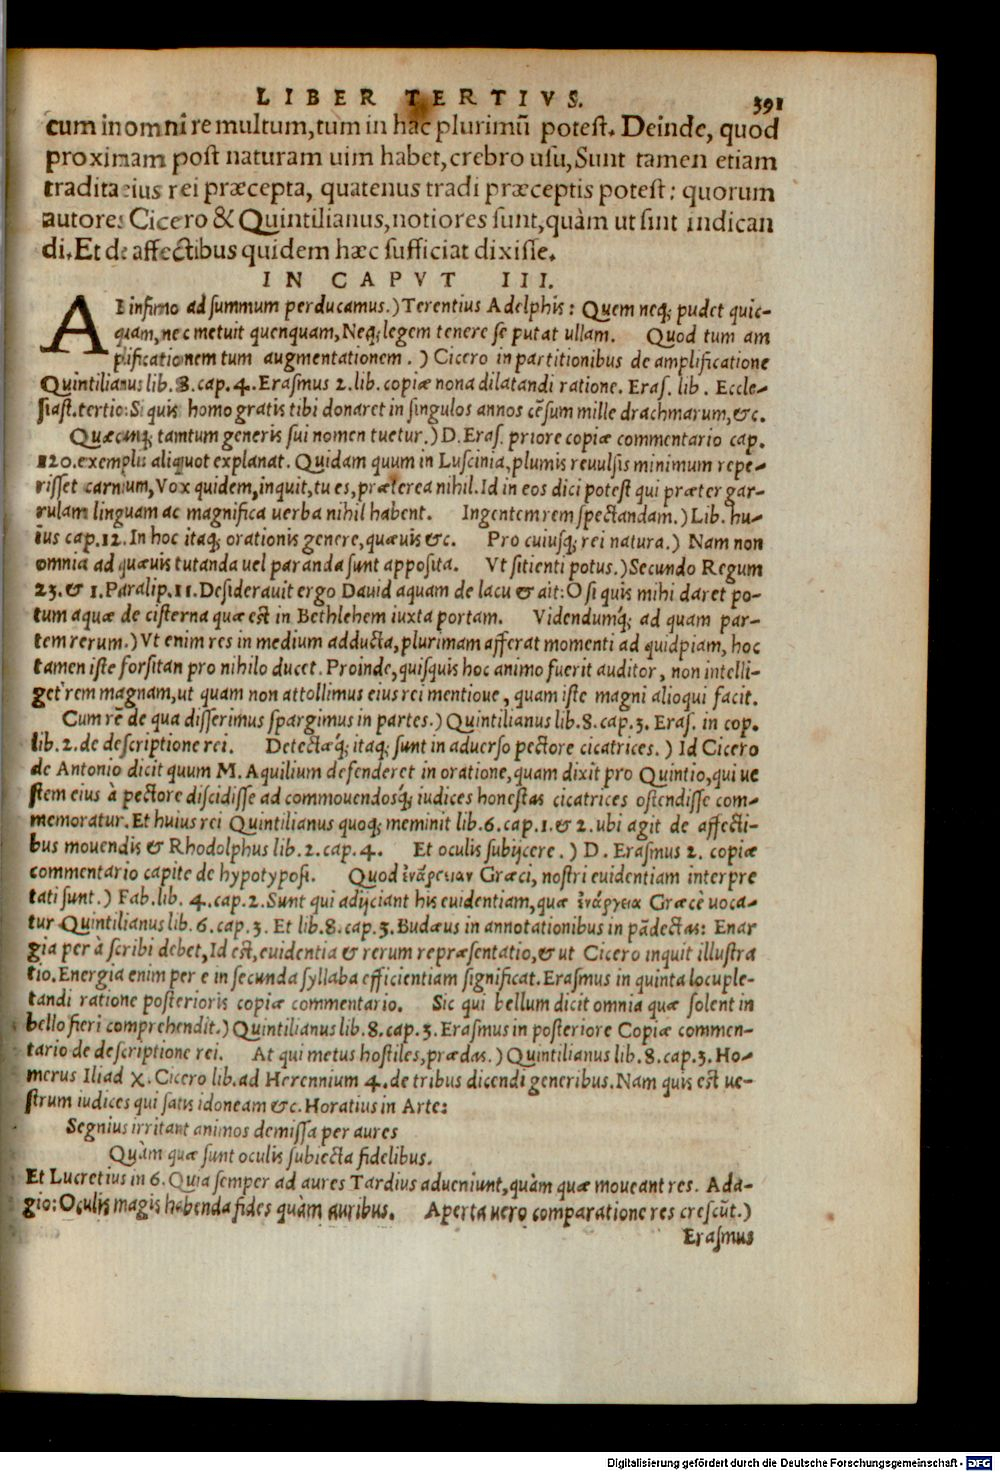 LIBER TERTIVS. 391
cum in omni re multum, tum in hac plurimũ potest. Deinde, quod
proximam post naturam uim habet, crebro usu, Sunt tamen etiam
tradita eius rei præcepta, quatenus tradi præceptis potest: quorum
autores Cicero & Quintilianus, notiores sunt, quàm ut sint indican
di. Et de affectibus quidem hæc sufficiat dixisse.
IN CAPVT III.
AB infimo ad summum perducamus.) Terentius Adelphis: Quem neq; pudet quic-
quam, nec metuit quenquam, Neq; legem tenere se putat ullam. Quod tum am
plificationem tum augmentationem.) Cicero in partitionibus de amplificatione
Quintilianus lib. 8. cap. 4. Erasmus 2. lib. copiæ nona dilatandi ratione. Eras. lib. Eccle-
siast. tertio: Si quis homo gratis tibi donaret in singulos annos cẽsum mille drachmarum, &c.
Quæcunq; tantum generis sui nomen tuetur.) D. Eras. priore copiæ commentario cap.
120. exemplis aliquot explanat. Quidam quum in Luscinia, plumis reuulsis minimum repe-
risset carnium, Vox quidem, inquit, tu es, præterea nihil. Id in eos dici potest qui præter gar-
rulam linguam ac magnifica uerba nihil habent. Ingentem rem spectandam.) Lib. hu-
ius cap. 12. In hoc itaq; orationis genere, quæuis &c. Pro cuiusq; rei natura.) Nam non
omnia ad quæuis tutanda uel paranda sunt apposita. Vt sitienti potus.) Secundo Regum
23. & 1. Paralip. 11. Desiderauit ergo Dauid aquam de lacu & ait: O si quis mihi daret po-
tum aquæ de cisterna quæ est in Bethlehem iuxta portam. Videndumq́; ad quam par-
tem rerum.) Vt enim res in medium adducta, plurimam afferat momenti ad quidpiam, hoc
tamen iste forsitan pro nihilo ducet. Proinde, quisquis hoc animo fuerit auditor, non intelli-
get rem magnam, ut quam non attollimus eius rei mentioue, quam iste magni alioqui facit.
Cum rẽ de qua disserimus spargimus in partes.) Quintilianus lib. 8. cap. 3. Eras. in cop.
lib. 2. de descriptione rei. Detectæq́; itaq; sunt in aduerso pectore cicatrices.) Id Cicero
de Antonio dicit quum M. Aquilium defenderet in oratione, quam dixit pro Quintio, qui ue
stem eius à pectore discidisse ad commouendosq́; iudices honestas cicatrices ostendisse com-
memoratur. Et huius rei Quintilianus quoq; meminit lib. 6. cap. 1. & 2. ubi agit de affecti-
bus mouendis & Rhodolphus lib. 2. cap. 4. Et oculis subijcere.) D. Erasmus 2. copiæ
commentario capite de hypotyposi. Quod ἐνάργειαν Græci, nostri euidentiam interpre
tati sunt.) Fab. lib. 4. cap. 2. Sunt qui adijciant his euidentiam, quæ ἐνάργεια Græcè uoca-
tur Quintilianus lib. 6. cap. 3. Et lib. 8. cap. 3. Budæus in annotationibus in pãdectas: Enar
gia per à scribi debet, Id est, euidentia & rerum repræsentatio, & ut Cicero inquit illustra
tio. Energia enim per e in secunda syllaba efficientiam significat. Erasmus in quinta locuple-
tandi ratione posterioris copiæ commentario. Sic qui bellum dicit omnia quæ solent in
bello fieri comprehendit.) Quintilianus lib. 8. cap. 3. Erasmus in posteriore Copiæ commen-
tario de descriptione rei. At qui metus hostiles, prædas.) Quintilianus lib. 8. cap. 3. Ho-
merus Iliad χ. Cicero lib. ad Herennium 4. de tribus dicendi generibus. Nam quis est ue-
strum iudices qui satis idoneam &c. Horatius in Arte:
Segnius irritant animos demissa per aures
Quàm quæ sunt oculis subiecta fidelibus.
Et Lucretius in 6. Quia semper ad aures Tardius adueniunt, quàm quæ moueant res. Ada-
gio: Oculis magis habenda fides quàm auribus. Aperta uero comparatione res crescũt.)
Erasmus
Digitalisierung gefördert durch die Deutsche Forschungsgemeinschaft - DFG